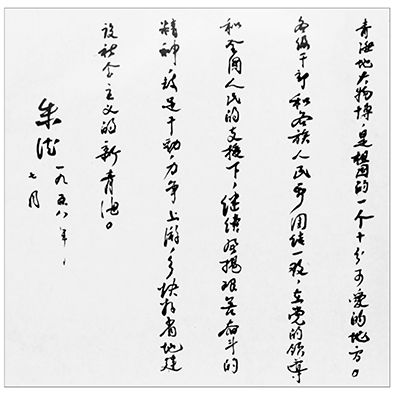 青海地大物博，是祖国的一个十分可爱的地方。
各级干部和各族人民要团结一致，在党的领导
和全国人民的支援下，继续发扬艰苦奋斗的
精神，鼓足干劲，力争上游，多快好省地建
设社会主义的新青海。
朱德
一九五八年，
七月